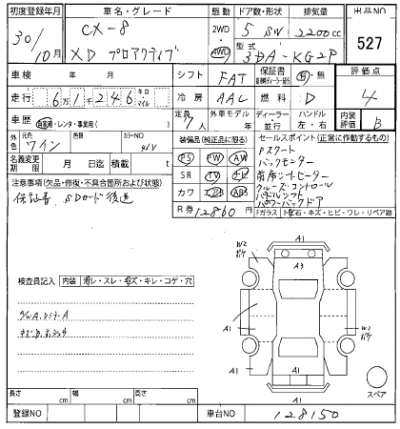 初度登録年月 車名・グレード 駆動 ドア数・形状 排気量 出品NO
30/10月 CX-8 XD プロアクティブ 2WD 4WD 5 SW 2200cc 527
型式 3DA-KG2P
車検 年 月 シフト FAT 保証書 有・無 評価点 4
走行 6万1千246 キロ マイル 冷房 AAC 燃料 D
車歴 自家用・レンタ・事業用( ) 定員 7人 外車モデル 年 ディーラー 並行 ハンドル 左・右 内装評価 B
外色 元色 ワイン 色替 カラーNO 装備品(純正品に限る) セールスポイント(正常に作動するもの)
名義変更期限 月 日迄 積載 t PS PW AW Pスタート
バックモニター
注意事項(欠品・修復・不具合箇所および状態) SR TV ナビ 前席シートヒーター
保証書、SDカード後送 カワ エアB ABS クルーズコントロール
パドルシフト
R券 12860円 パワーバックドア
Fガラス トビ石・キズ・ヒビ・ワレ・リペア跡
検査員記入 内装 汚レ・スレ・キズ・キレ・コゲ・穴
A1
W2
A3
A1
A1
W2
A1
A1
長さ cm 幅 cm 高さ cm スペア
登録NO 車台NO 128150